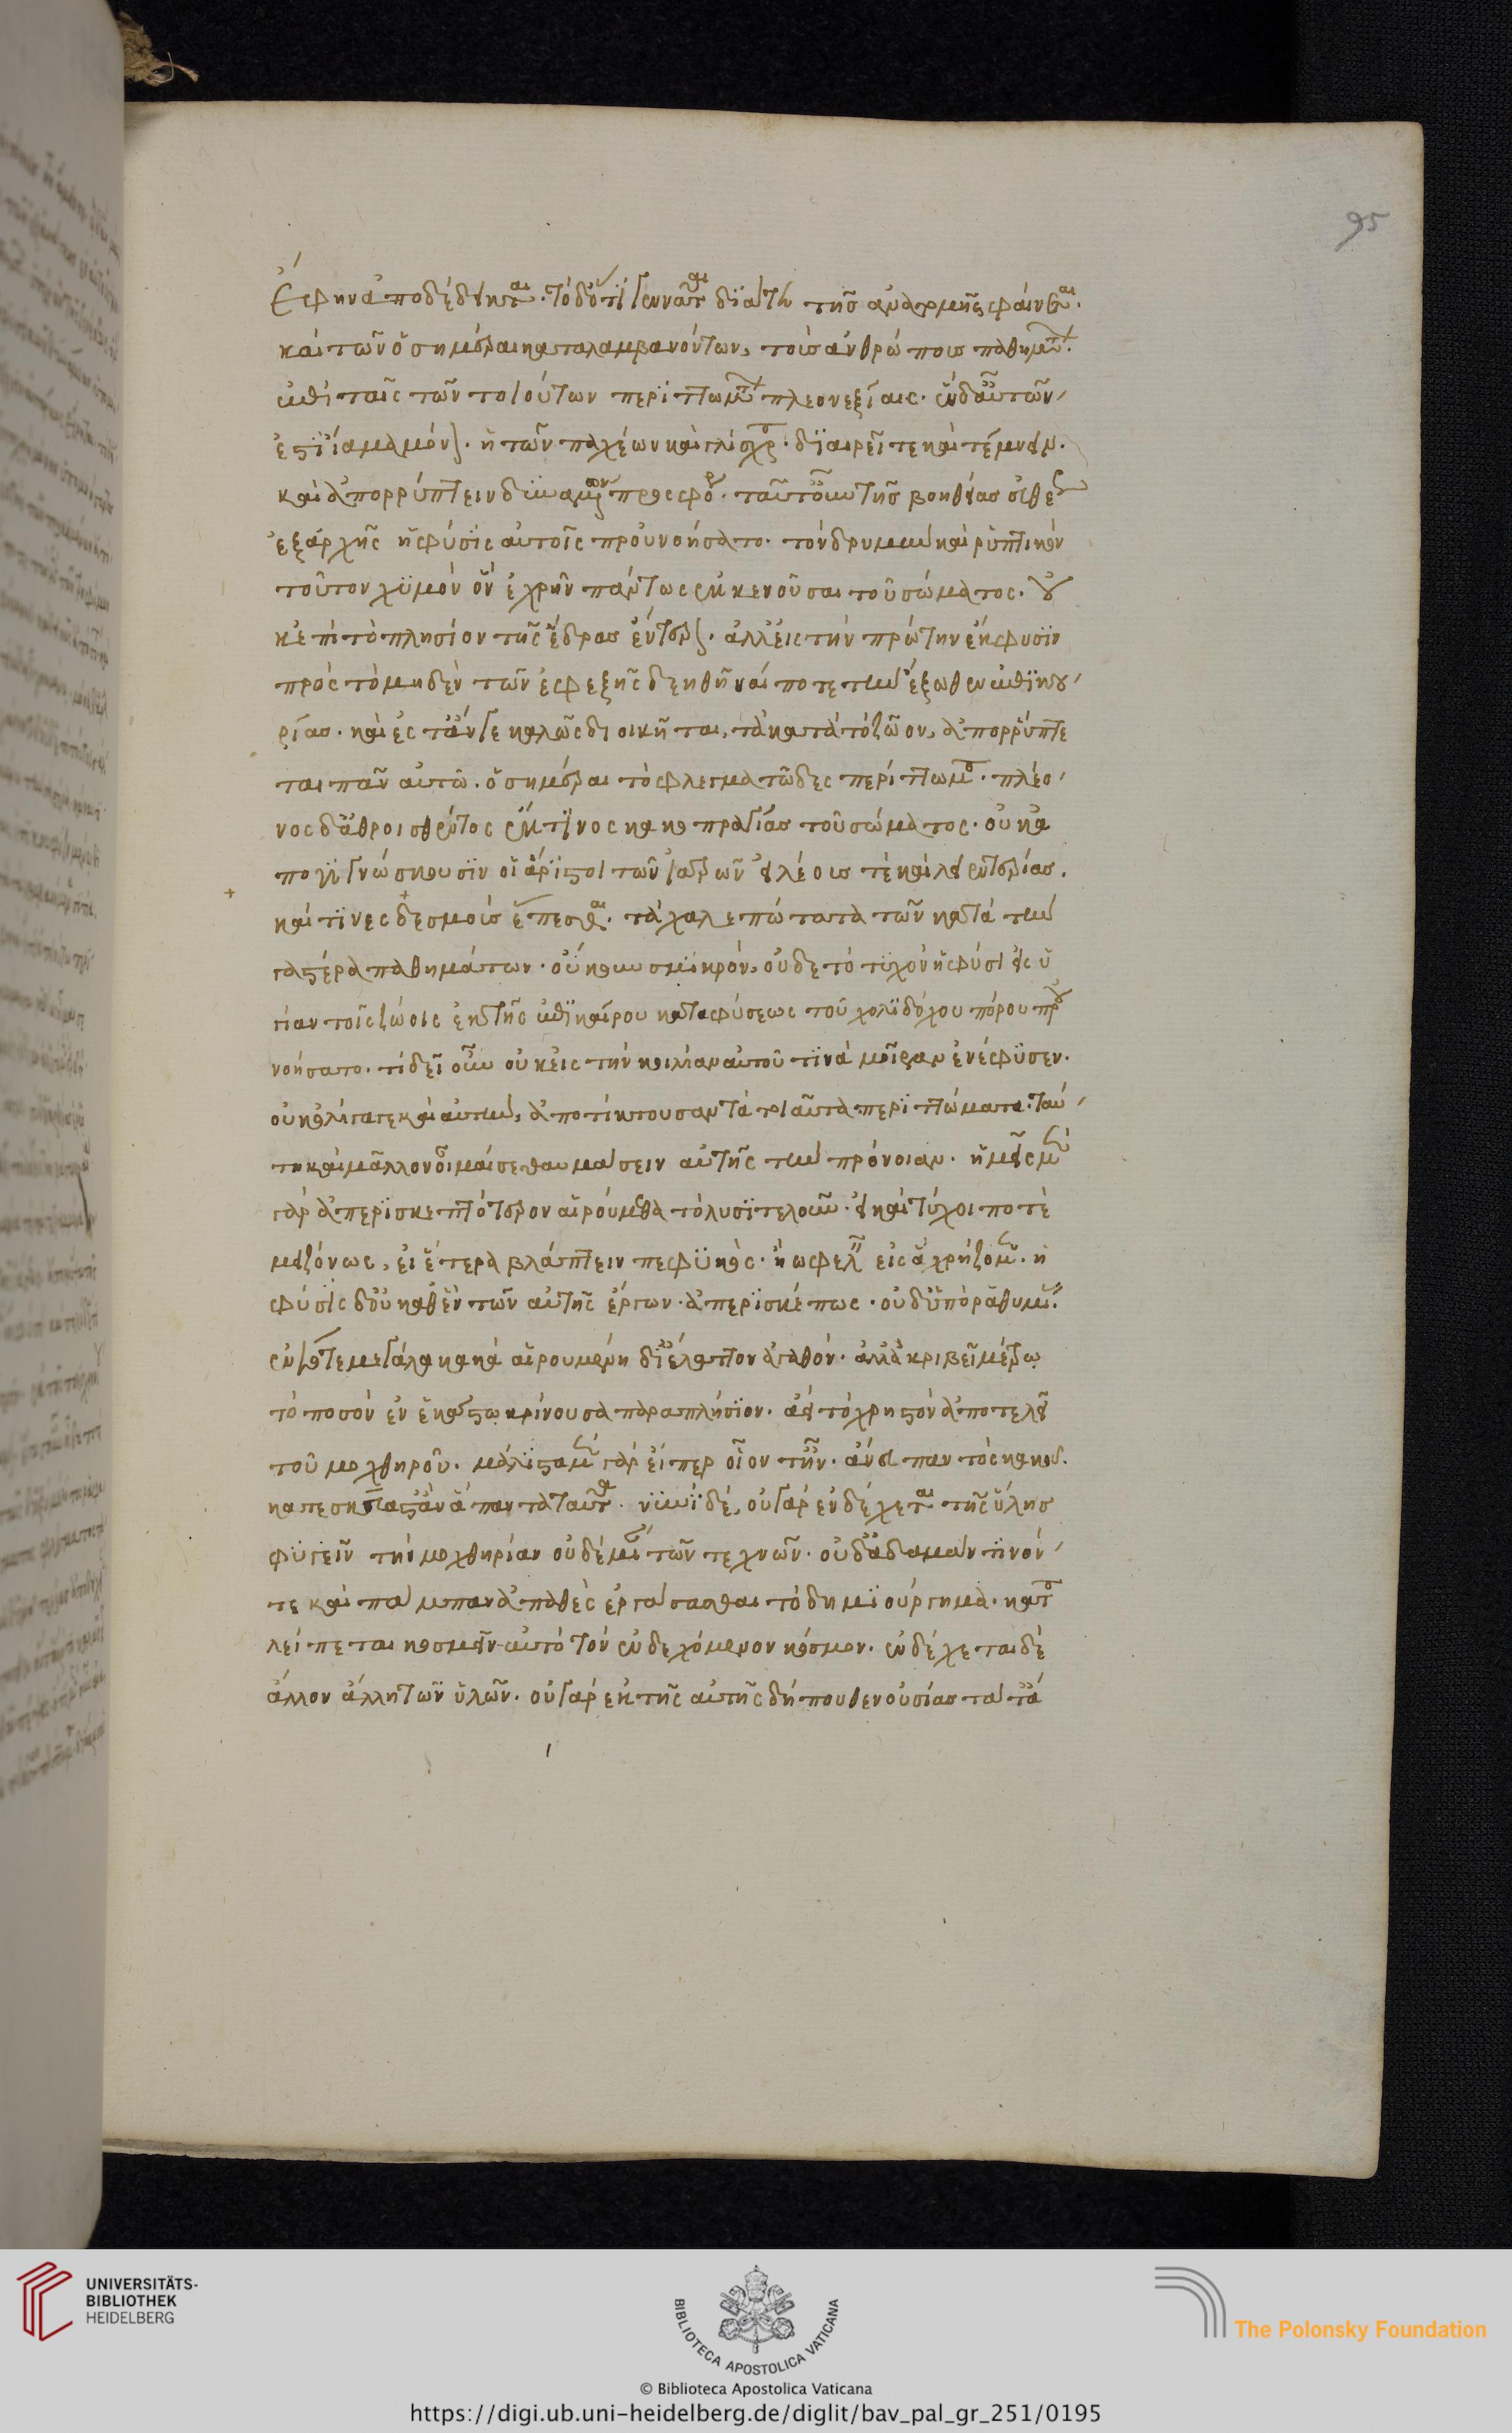 95
ἑτέρων ἀποδέδεικται. τὸ δ' ὅτι γεννᾶται διά τε τῆς ἀνατομῆς φαίνεται.
καὶ τῶν ὁσημέραι καταλαμβανόντων, τοῖς ἀνθρώποις παθημάτων
ἐπὶ ταῖς τῶν τοιούτων περιττωμάτων πλεονεξίαις. ἓν δ' αὐτῶν
ἐστὶν ἴαμα μόνον. ἡ τῶν παχέων καὶ γλίσχρων. διαιρεῖν τε καὶ τέμνειν.
καὶ ἀπορρύπτειν δυναμένων προσφορά. ταύτην οὖν τῆς βοηθείας οἴκοθεν
ἐξ ἀρχῆς ἡ φύσις αὐτοῖς προὐνοήσατο. τὸν δριμὺν καὶ ῥυπτικὸν
τοῦτον χυμὸν ὃν ἐχρῆν πάντως ἐκκενοῦσαι τοῦ σώματος. οὐ
κ ἐπὶ τὸ πλησίον τῆς ἕδρας ἔντερον. ἀλλ' εἰς τὴν πρώτην ἔκφυσιν
πρὸς τὸ μηδὲν τῶν ἐφεξῆς δεηθῆναί ποτε τῶν ἔξωθεν ἐπικου
ρίας. καὶ ἔς τ' ἄν γε καλῶς διοικῆται, τὰ κατὰ τὸ ζῶον, ἀπορρύπτε
ται πᾶν αὐτῷ. ὁσημέραι τὸ φλεγματῶδες περίττωμα. πλέο
νος δ' ἀθροισθέντος ἔκ τινος κακοπραγίας τοῦ σώματος. οὐκ ἀ
πογινώσκουσιν οἱ ἄριστοι τῶν ἰατρῶν εἰλέοις τε καὶ λειεντερίας.
καὶ τινες δεσμοῖς ἕπεσθαι. τὰ χαλεπώτατα τῶν κατὰ τὴν
γαστέρα παθημάτων. οὔκουν σμικρόν, οὐδὲ τὸ τυχὸν ἡ φύσις εἰς ὑ
γίαν τοῖς ζώοις ἐκ τῆς ἐπικαίρου καταφύσεως τοῦ χοληδόχου πόρου προὐ
νοήσατο. τί δεῖ οὖν οὐκ εἰς τὴν κοιλίαν αὐτοῦ τινὰ μοῖραν ἐνέφυσεν.
οὐκ ὀλίγα γε καὶ αὐτήν, ἀποτίκτουσαν τὰ τοιαῦτα περιττώματα. ταύ
τῃ καὶ μᾶλλον οἶμαί σε θαυμάσειν αὐτῆς τὴν πρόνοιαν. ἡμεῖς μὲν
γὰρ ἀπερισκεπτότερον αἱρούμεθα τὸ λυσιτελοῦν. εἰ καὶ τύχοι ποτὲ
μειζόνως, εἰς ἕτερα βλάπτειν πεφυκὸς. ἢ ὠφελεῖν εἰς ἃ χρῄζομεν. ἡ
φύσις δ' οὐ καθ' ἓν τῶν αὐτῆς ἔργων. ἀπερισκέπτως. οὐδ' ὑπὸ ῥᾳθυμίας.
ἐργάζεται μεγάλα κακὰ αἱρουμένη δι' ἔλαττον ἀγαθόν. ἀλλ' ἀκριβεῖ μέτρῳ
τὸ ποσὸν ἐν ἑκάστῳ κρίνουσα παραπλήσιον. ἀεὶ τὸ χρηστὸν ἀποτελεῖ
τοῦ μοχθηροῦ. μάλιστα μὲν γὰρ εἴπερ οἷόν τ' ἦν. ἄνευ παντὸς κακοῦ.
κατεσκεύαστ' ἂν ἅπαντα ταῦτα. νυνὶ δέ, οὐ γὰρ ἐνδέχεται τῆς ὕλης
φυγεῖν τὴν μοχθηρίαν οὐδεμιᾷ τῶν τεχνῶν. οὐδ' ἀδαμάντινόν
τε καὶ πάμπαν ἀπαθὲς ἐργάσασθαι τὸ δημιούργημα. κατα
λείπεται κοσμεῖν αὐτὸ τὸν ἐνδεχόμενον κόσμον. ἐνδέχεται δὲ
ἄλλον ἄλλη τῶν ὑλῶν. οὐ γὰρ ἐκ τῆς αὐτῆς δήπουθεν οὐσίας τά τ' ἄ
UNIVERSITÄTS-
BIBLIOTHEK
HEIDELBERG
BIBLIOTECA APOSTOLICA VATICANA
The Polonsky Foundation
© Biblioteca Apostolica Vaticana
https://digi.ub.uni-heidelberg.de/diglit/bav_pal_gr_251/0195